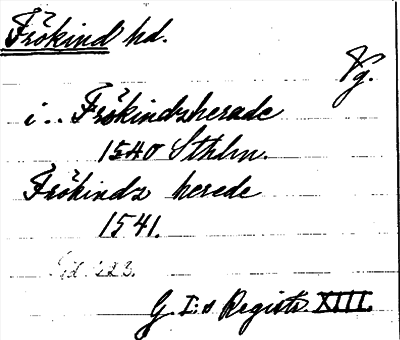 Frökind hd.
Vg.
i.. Frökindsherade
1540 Sthlm.
Frökinds herede
1541.
G. I:s Registr. XIII.